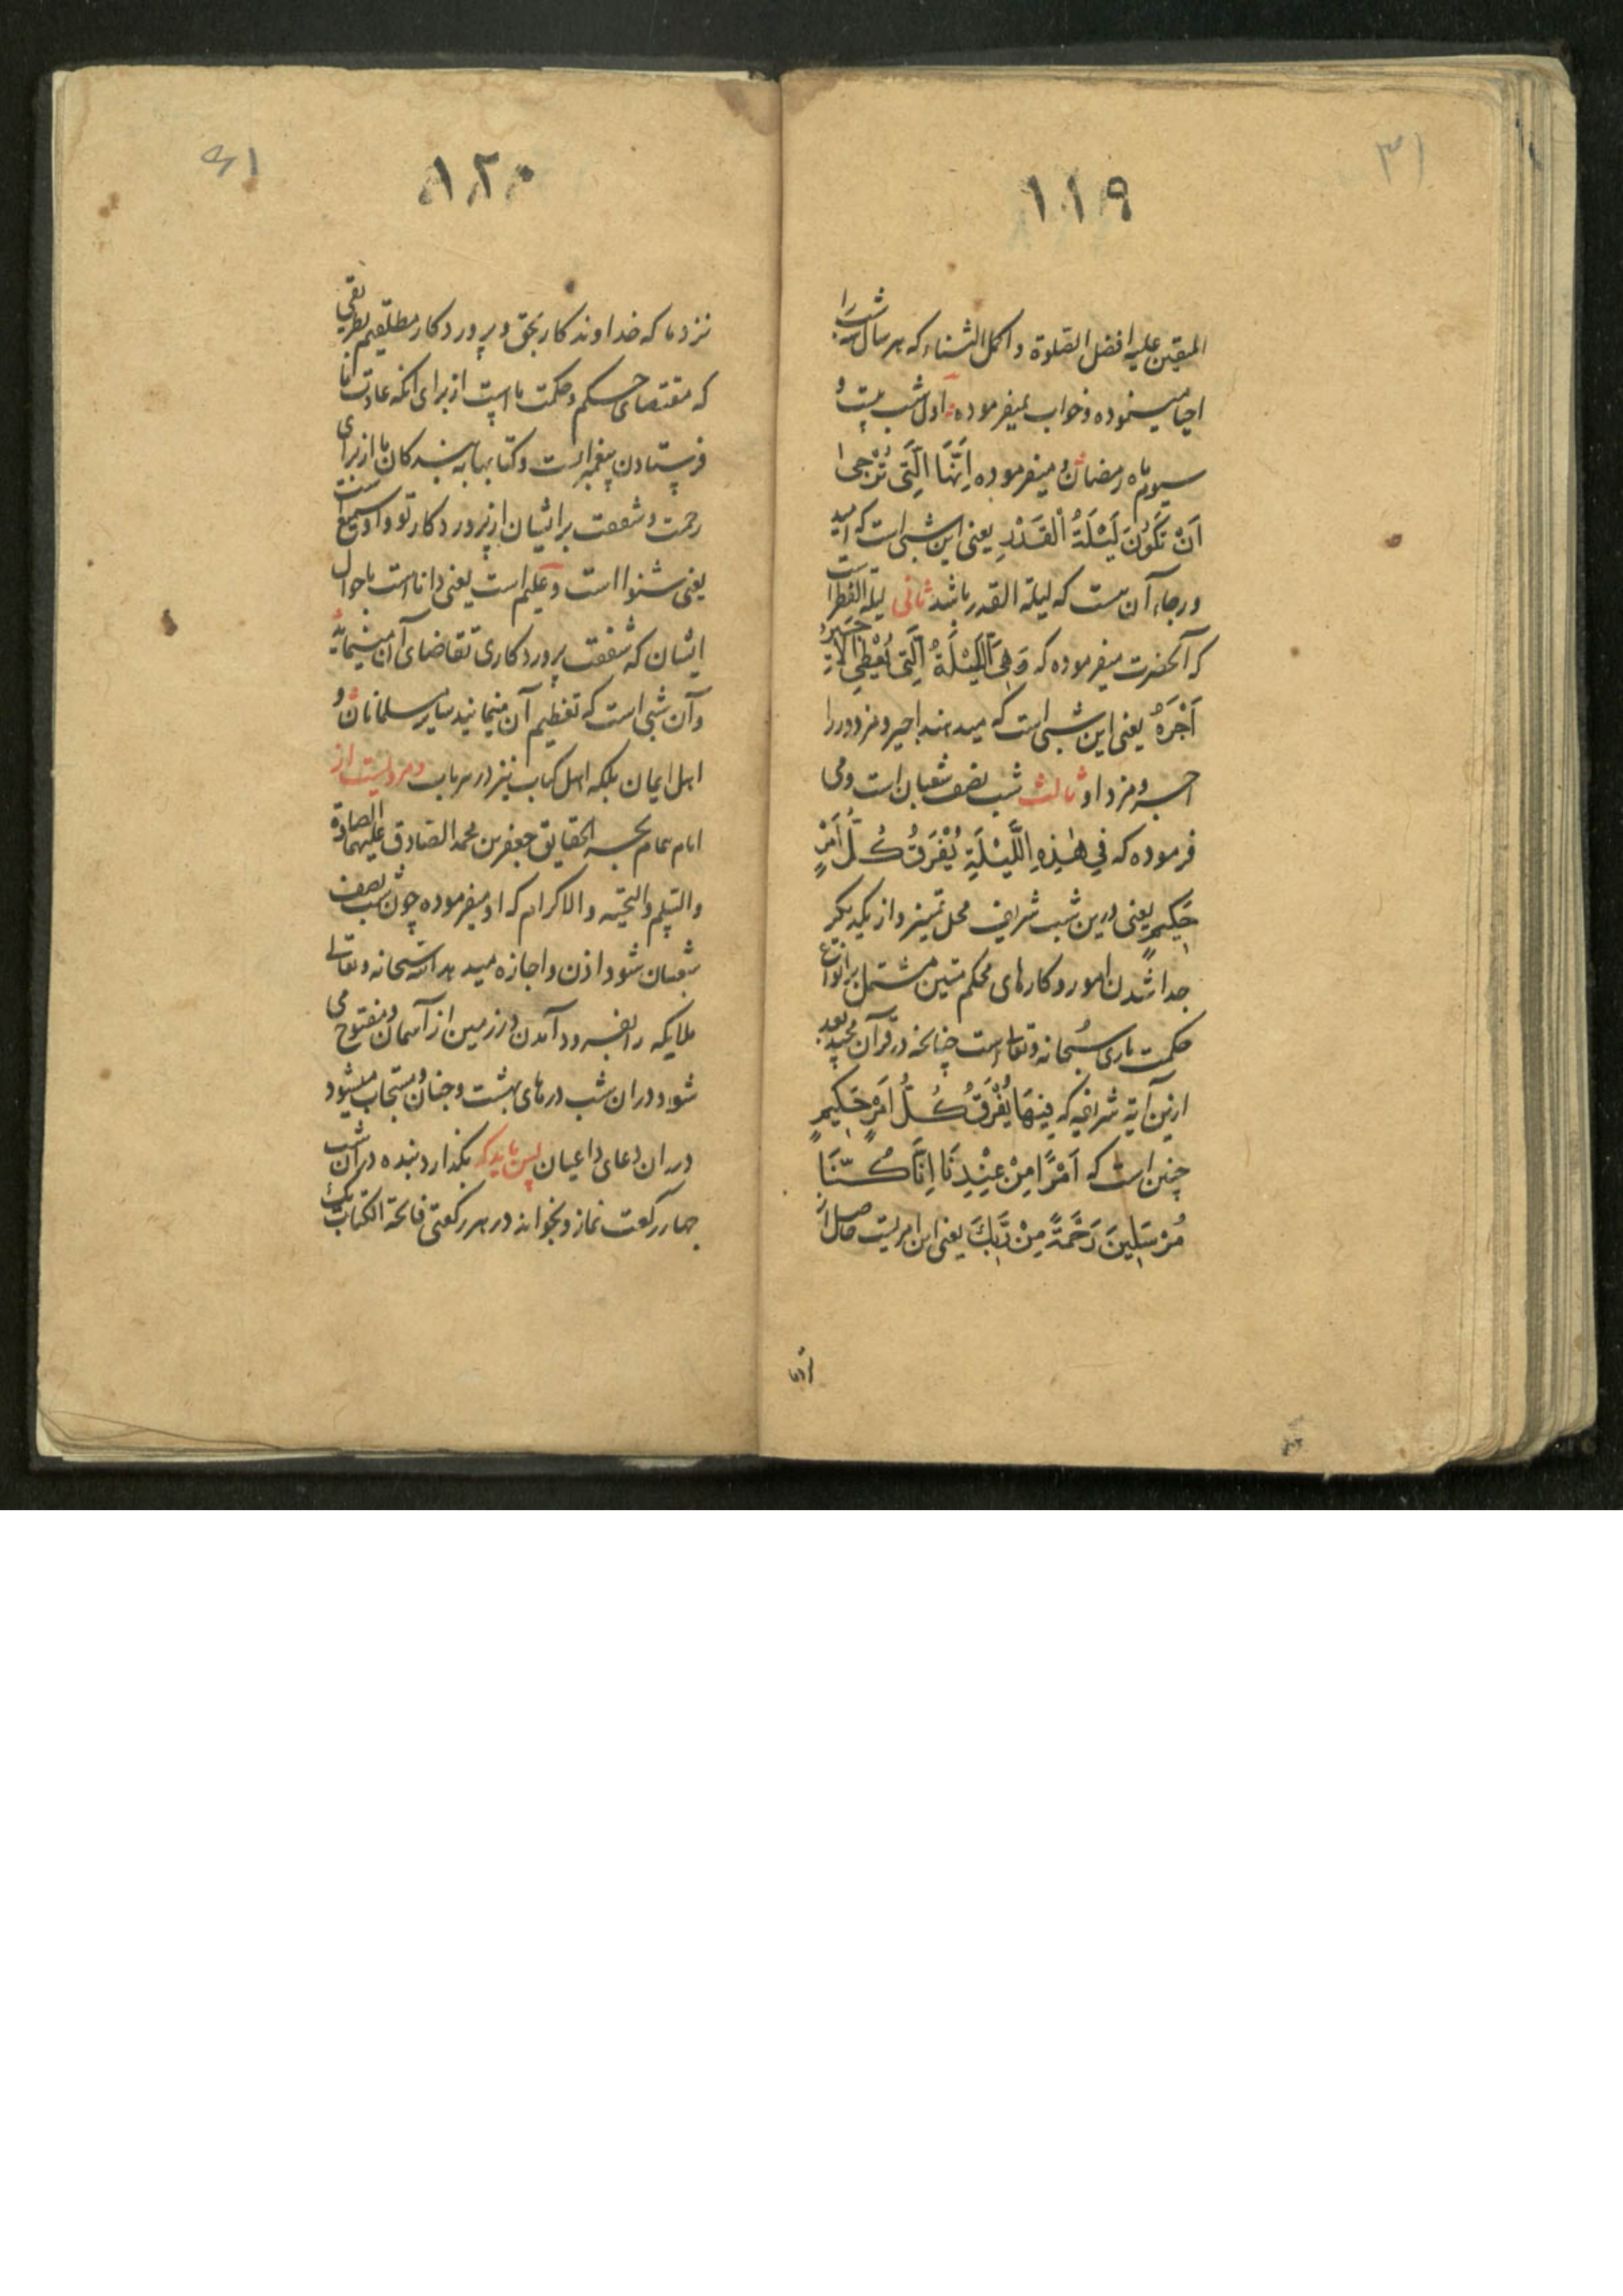 ٣١
١١٩
المتقین علیه افضل الصلوة و اکمل الثناء که هر سال سه شب را
احیا مینموده و خواب نمیفرموده اول شب بیست و
سیوم ماه رمضان و میفرموده اِنَّهَا الَّتی تُرْجیٰ
اَنْ تَکُونَ لَیْلَةُ الْقَدْرِ یعنی این شبی است که امید
و رجاء آن هست که لیلة القدر باشد ثانی لیلة الفطر است
که آنحضرت میفرموده که وَ هِیَ اللَّیْلَةُ الَّتی یُعْطی الاَجیرُ
اَجْرَهُ یعنی این شبی است که میدهند اجیر و مزدور را
اجر و مزد او ثالث شب نصف شعبان است و می
فرموده که فی هٰذِهِ اللَّیْلَةِ یُفْرَقُ کُلُّ اَمْرٍ
حَکیمٍ یعنی درین شب شریف محل تمییز و از یکدیگر
جدا شدن امور و کارهای محکم متین مشتمل بر انواع
حکمت باری سُبحانه و تعالی است چنانچه در قرآن مجید بعد
ازین آیۀ شریفه که فیهَا یُفْرَقُ کُلُّ اَمْرٍ حَکیمٍ
چنین است که اَمْرًا مِنْ عِنْدِنَا اِنَّا کُنَّا
مُرْسَلینَ رَحْمَةً مِنْ رَبِّکَ یعنی این امریست حاصل از
نزد ما
٣١
١٢٠
نزد ما که خداوندکار بحق و پروردکار مطلقیم بطریقی
که مقتضای حکم و حکمت ما است از برای انکه عادت ما
فرستادن پیغمبرانست و کتابها به بندکان ما از برای
رحمت و شفقت بر ایشان از پروردکار تو و او سمیع است
یعنی شنوا است و علیم است یعنی دانا است باحوال
ایشان که شفقت پروردکاری تقاضای آن مینماید
و آن شبی است که تعظیم آن مینمایند سایر مسلمانان و
اهل ایمان بلکه اهل کتاب نیز درین باب و مرویست از
امام همام بحر الحقایق جعفر بن محمد الصادق علیهما الصلوة
و التسلیم و التحیه و الاکرام که او میفرموده چون شب نصف
شعبان شود اذن و اجازه میدهد الله سبحانه و تعالی
ملایکه را بفرود آمدن در زمین از آسمان و مفتوح می
شود در ان شب درهای بهشت و جنان و مستجاب میشود
در ان دعای داعیان پس باید که بکذارد بنده در آن شب
چهار رکعت نماز و بخواند در هر رکعتی فاتحة الکتاب یک